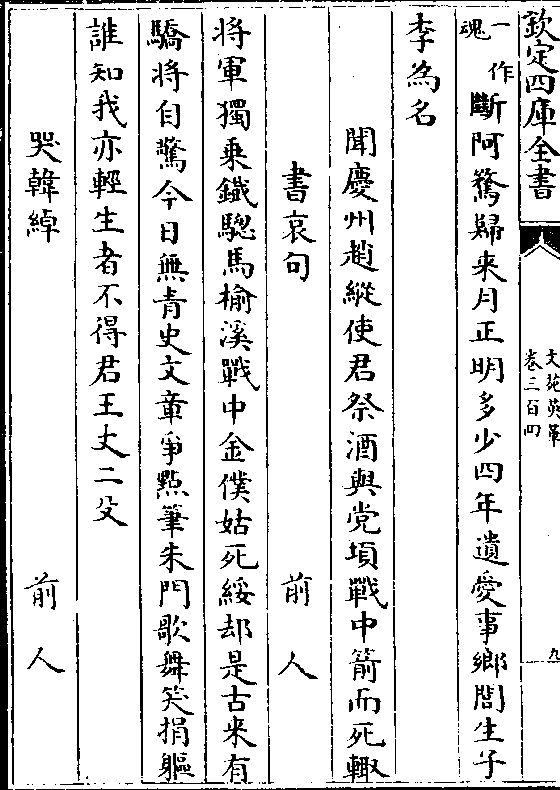 欽定四庫全書
文苑英華
卷三百四
九
一作
魂
斷阿驚歸来月正明多少四年遺愛事鄉閭生子
李為名
聞慶州趙縱使君祭酒與党項戰中箭而死輙
書哀句
前人
将軍獨乗鐵驄馬榆溪戰中金僕姑死綏却是古来有
驕将自驚今日無青史文章爭㸃筆朱門歌舞笑捐軀
誰知我亦輕生者不得君王丈二殳
哭韓綽
前人